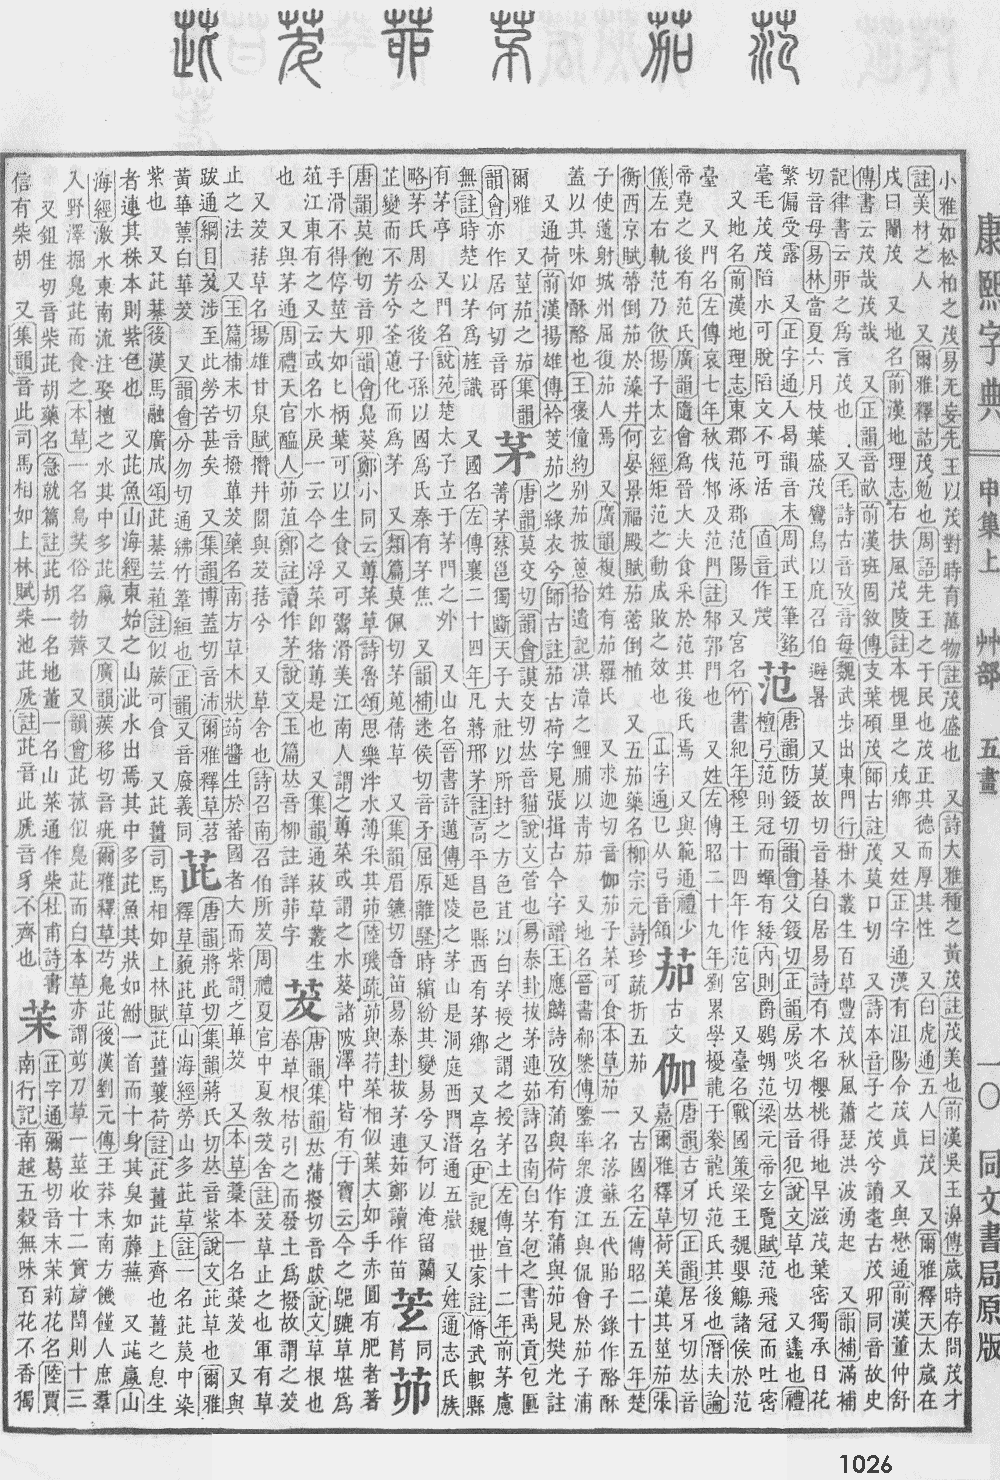 范 茄 茅 茆 茇 茈
小雅如松柏之茂易无妄先王以茂對時育萬物註茂盛也 又詩大雅種之黃茂註茂美也前漢吳王濞傳歲時存問茂才
註美材之人 又爾雅釋詁茂勉也周語先王之于民也茂正其德而厚其性 又白虎通五人曰茂 又爾雅釋天太歲在
戌曰閹茂 又地名前漢地理志右扶風茂陵註本槐里之茂鄉 又姓正字通漢有沮陽令茂眞 又與懋通前漢董仲舒
傳書云茂哉茂哉 又正韻音畝前漢班固敘傳支葉碩茂師古註茂莫口切 又詩本音子之茂兮讀耄古茂卯同音故史
記律書云丣之爲言茂也 又毛詩古音攷音每魏武步出東門行樹木叢生百草豐茂秋風蕭瑟洪波湧起 又韻補滿補
切音母易林當夏六月枝葉盛茂鸞鳥以庇召伯避暑 又莫故切音暮白居易詩有木名櫻桃得地早滋茂葉密獨承日花
繁偏受露 又正字通入曷韻音末周武王筆銘
毫毛茂茂陷水可脫陷文不可活 直音作茷
范
唐韻防錽切韻會父錽切正韻房啖切𠀤音犯說文草也 又蟲也禮
檀弓范則冠而蟬有緌內則爵鷃蜩范梁元帝玄覽賦范飛冠而吐密
又地名前漢地理志東郡范涿郡范陽 又宮名竹書紀年穆王十四年作范宮 又臺名戰國策梁王魏嬰觴諸侯於范
臺 又門名左傳哀七年秋伐邾及范門註邾郭門也 又姓左傳昭二十九年劉累學擾龍于豢龍氏范氏其後也潛夫論
帝堯之後有范氏廣韻隨會爲晉大夫食采於范其後氏焉 又與範通禮少
儀左右軌范乃飮揚子太玄經矩范之動成敗之效也 正字通㔾从弓音頷
茄
古文
伽
唐韻古牙切正韻居牙切𠀤音
嘉爾雅釋草荷芙蕖其莖茄張
衡西京賦蔕倒茄於藻井何晏景福殿賦茄蔤倒植 又五茄藥名柳宗元詩珍蔬折五茄 又古國名左傳昭二十五年楚
子使薳射城州屈復茄人焉 又廣韻複姓有茄羅氏 又求迦切音伽茄子菜可食本草茄一名落蘇五代貽子錄作酪酥
蓋以其味如酥酪也王褒僮約別茄披蔥拾遺記淇漳之鯉脯以靑茄 又地名晉書郗鑒傳鑒率衆渡江與侃會於茄子浦
又通荷前漢揚雄傳衿芰茄之綠衣兮師古註茄古荷字見張揖古今字譜王應麟詩攷有蒲與荷作有蒲與茄見樊光註
爾雅 又莖茄之茄集韻
韻會亦作居何切音哥
茅
唐韻莫交切韻會謨交切𠀤音貓說文菅也易泰卦拔茅連茹詩召南白茅包之書禹貢包匭
菁茅蔡邕獨斷天子大社以所封之方色苴以白茅授之謂之授茅土左傳宣十二年前茅慮
無註時楚以茅爲旌識 又國名左傳襄二十四年凡蔣邢茅註高平昌邑縣西有茅鄉 又亭名史記魏世家註脩武軹縣
有茅亭 又門名說苑楚太子立于茅門之外 又山名晉書許邁傳延陵之茅山是洞庭西門潛通五嶽 又姓通志氏族
略茅氏周公之後子孫以國爲氏秦有茅焦 又韻補迷侯切音矛屈原離騷時繽紛其變易兮又何以淹留蘭
芷變而不芳兮荃蕙化而爲茅 又類篇莫佩切茅蒐蒨草 又集韻眉鑣切音苗易泰卦拔茅連茹鄭讀作苗
同
茆
唐韻莫飽切音卯韻會鳧葵鄭小同云蓴菜草詩魯頌思樂泮水薄采其茆陸璣疏茆與荇菜相似葉大如手赤圓有肥者著
手滑不得停莖大如匕柄葉可以生食又可鬻滑美江南人謂之蓴菜或謂之水葵諸陂澤中皆有于寶云今之䴙蹗草堪爲
菹江東有之又云或名水戾一云今之浮菜卽猪蓴是也 又集韻通菽草叢生
也 又與茅通周禮天官醢人茆菹鄭註讀作茅說文玉篇𠀤音柳註詳茆字
茇
唐韻集韻𠀤蒲撥切音跋說文草根也
春草根枯引之而發土爲撥故謂之茇
又茇葀草名揚雄甘泉賦攢幷閭與茇葀兮 又草舍也詩召南召伯所茇周禮夏官中夏敎茇舍註茇草止之也軍有草
止之法 又玉篇補末切音撥蓽茇藥名南方草木狀蒟醬生於蕃國者大而紫謂之蓽茇 又本草藁本一名藁茇 又與
跋通綱目茇涉至此勞苦甚矣 又集韻博蓋切音沛爾雅釋草苕
黃華蔈白華茇 又韻會分勿切通紼竹葦絙也正韻又音廢義同
茈
唐韻將此切集韻蔣氏切𠀤音紫說文茈草也爾雅
釋草藐茈草山海經勞山多茈草註一名茈䓞中染
紫也 又茈綦後漢馬融廣成頌茈綦芸蒩註似蕨可食 又茈薑司馬相如上林賦茈薑蘘荷註茈薑茈上齊也薑之息生
者連其株本則紫色也 又茈魚山海經東始之山泚水出焉其中多茈魚其狀如鮒一首而十身其臭如蘼蕪 又茈蠃山
海經激水東南流注娶檀之水其中多茈蠃 又廣韻蒺移切音疵爾雅釋草芍鳧茈後漢劉元傳王莽末南方饑僅人庶羣
入野澤掘鳧茈而食之本草一名烏芙俗名勃薺 又韻會茈菰似鳧茈而白本草亦謂剪刀草一莖收十二實歲閏則十三
又鉏佳切音柴茈胡藥名急就篇註茈胡一名地薰一名山菜通作柴杜甫詩書
信有柴胡 又集韻音此司馬相如上林賦柴池茈虒註茈音此虒音豸不齊也
茉
正字通彌葛切音末茉莉花名陸賈
南行記南越五穀無味百花不香獨
康熙字典 申集上 艸部 五畫 一〇 同文書局原版
1026